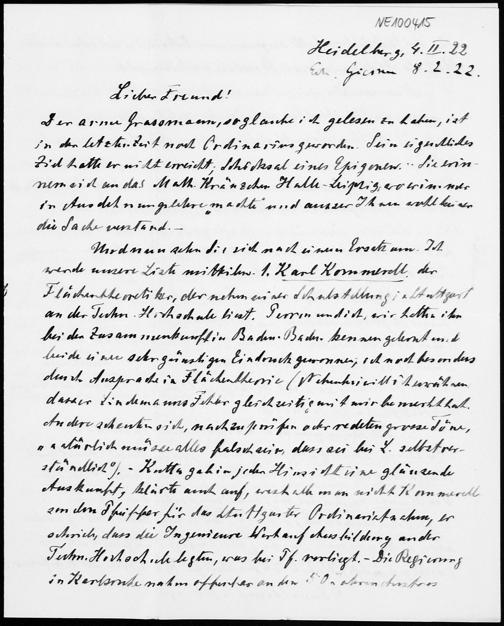 NE100415
Heidelberg, 4. II. 22
Erh. Giessen 8. 2. 22.
Lieber Freund!
Der arme Grassmann, so glaube ich gelesen zu haben, ist
in der letzten Zeit noch Ordinarius geworden. Sein eigentliches
Ziel hatte er nicht erreicht, Schicksal eines Epigonen. – Sie erin-
nern sich an das Math. Kränzchen Halle-Leipzig, wo er immer
in Ausdehnungslehre „machte“ und ausser Ihnen wohl keiner
die Sache verstand. –
Und nun sehen Sie sich nach einem Ersatz um. Ich
werde unsere Liste mitteilen. 1. Karl Kommerell, der
Flächentheoretiker, der neben einer Schulstellung in Stuttgart
an der Techn. Hochschule liest. Perron und ich, wir hatten ihn
bei den Zusammenkünften in Baden-Baden kennen gelernt und
beide einen sehr günstigen Eindruck gewonnen, ich noch besonders
durch Aussprache in Flächentheorie (Nebenbei will ich erwähnen
dass er Lindemanns Fehler gleichzeitig mit mir bemerkt hat.
Andere scheuten sich, nachzuprüfen oder redeten grosse Töne,
„natürlich müsse alles falsch sein, dass sei bei L. selbstver-
ständlich“). – Kutta gab in jeder Hinsicht eine glänzende
Auskunft, klärte auch auf, weshalb man nicht Kommerell
sondern Pfeiffer für das Stuttgarter Ordinariat nahm, er
schrieb, dass die Ingenieure Wert auf chesbildung an der
Techn. Hochschule legten, was bei Pf. vorliegt. – Die Regierung
in Karlsruhe nahm offenbar an den